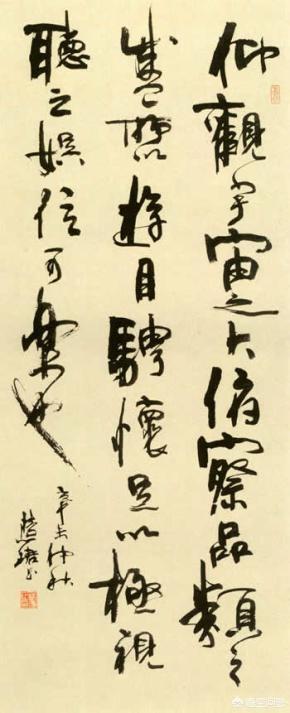 仰觀宇宙之大俯察品類之
盛所以遊目騁懷足以極視
聽之娱信可樂也
辛未仲秋
慧珺书
悟空问答